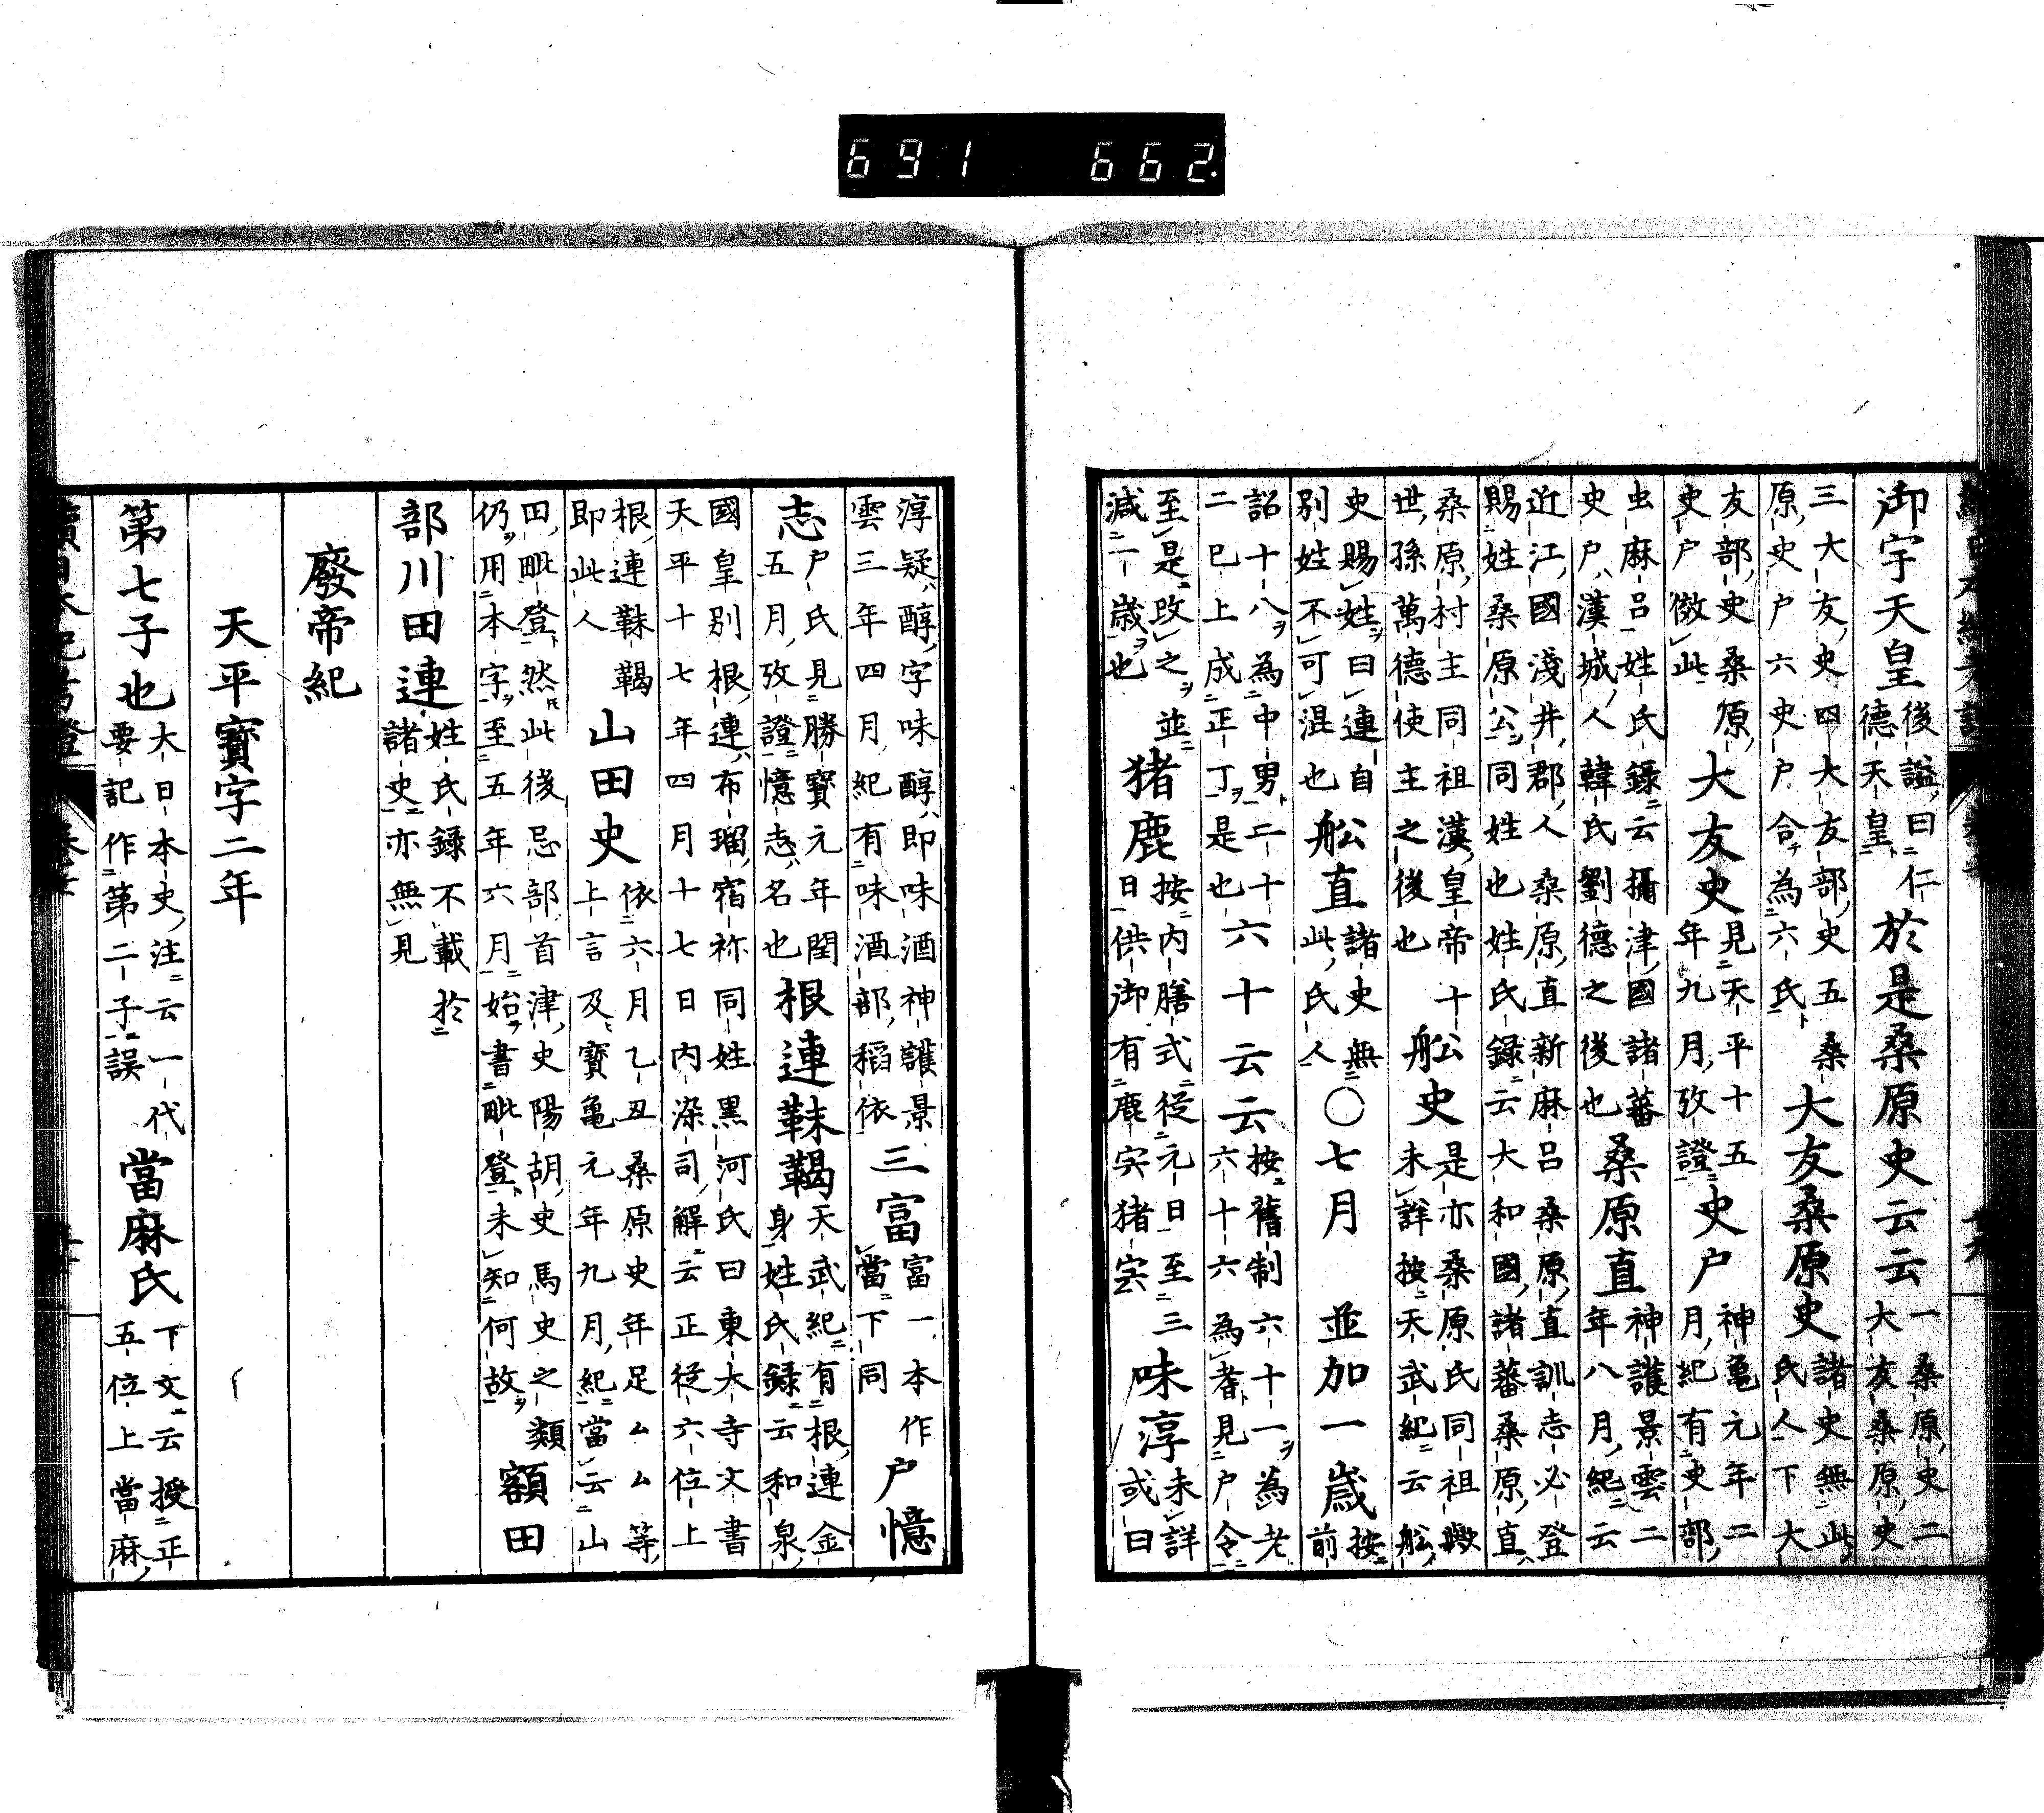 691 662.
御宇天皇後謚曰仁德天皇於是桑原史云云一桑原史二大友桑原史
三大友史四大友部史五桑原史戸六史戸合為六氏大友桑原史諸史無此氏人下大
友部史桑原史戸倣此大友史見天平十五年九月攷證史戸神亀元年二月紀有史部
虫麻呂姓氏録云攝津國諸蕃史戸漢城人韓氏劉德之後也桑原直神護景雲二年八月紀云
近江國淺井郡人桑原直新麻呂桑原直訓志必登賜姓桑原公同姓也姓氏録云大和國諸蕃桑原直
桑原村主同祖漢皇帝十世孫萬德使主之後也舩史是亦桑原氏同祖歟未詳按天武紀云舩
史賜姓曰連自別姓不可混也舩直諸史無此氏人〇七月 並加一歳按前
詔十八為中男二十二巳上成正丁是也六十云云按舊制六十一為老六十六為耆見戸令
至是改之並減一歳也猪鹿按内膳式從元日至三日供御有鹿宍猪宍味淳未詳或曰
淳疑醇字味醇即味酒神護景雲三年四月紀有味酒部稻依三富富一本作當下同戸憶
志戸氏見勝寳元年閏五月攷證憶志名也根連靺鞨天武紀有根連金身姓氏録云和泉
國皇別根連布瑠宿祢同姓黒河氏曰東大寺文書天平十七年四月十七日内染司解云正從六位上
根連靺鞨即此人山田史依六月乙丑桑原史年足ムム等上言及寳亀元年九月紀當云山
田毗登然此後忌部首津史陽胡史馬史之類仍用本字至五年六月始書毗登未知何故額田
部川田連姓氏録不載於諸史亦無見
廢帝紀
天平寳字二年
第七子也大日本史注云一代要記作第二子誤當麻氏下文云授正五位上當麻